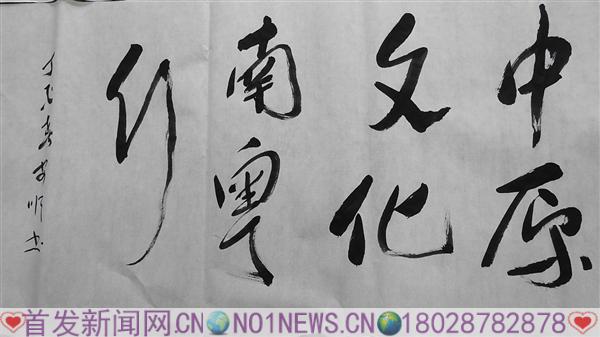 中原
文化
南粤
行
丁酉春
首发新闻网.CN NO1NEWS.CN 18028782878